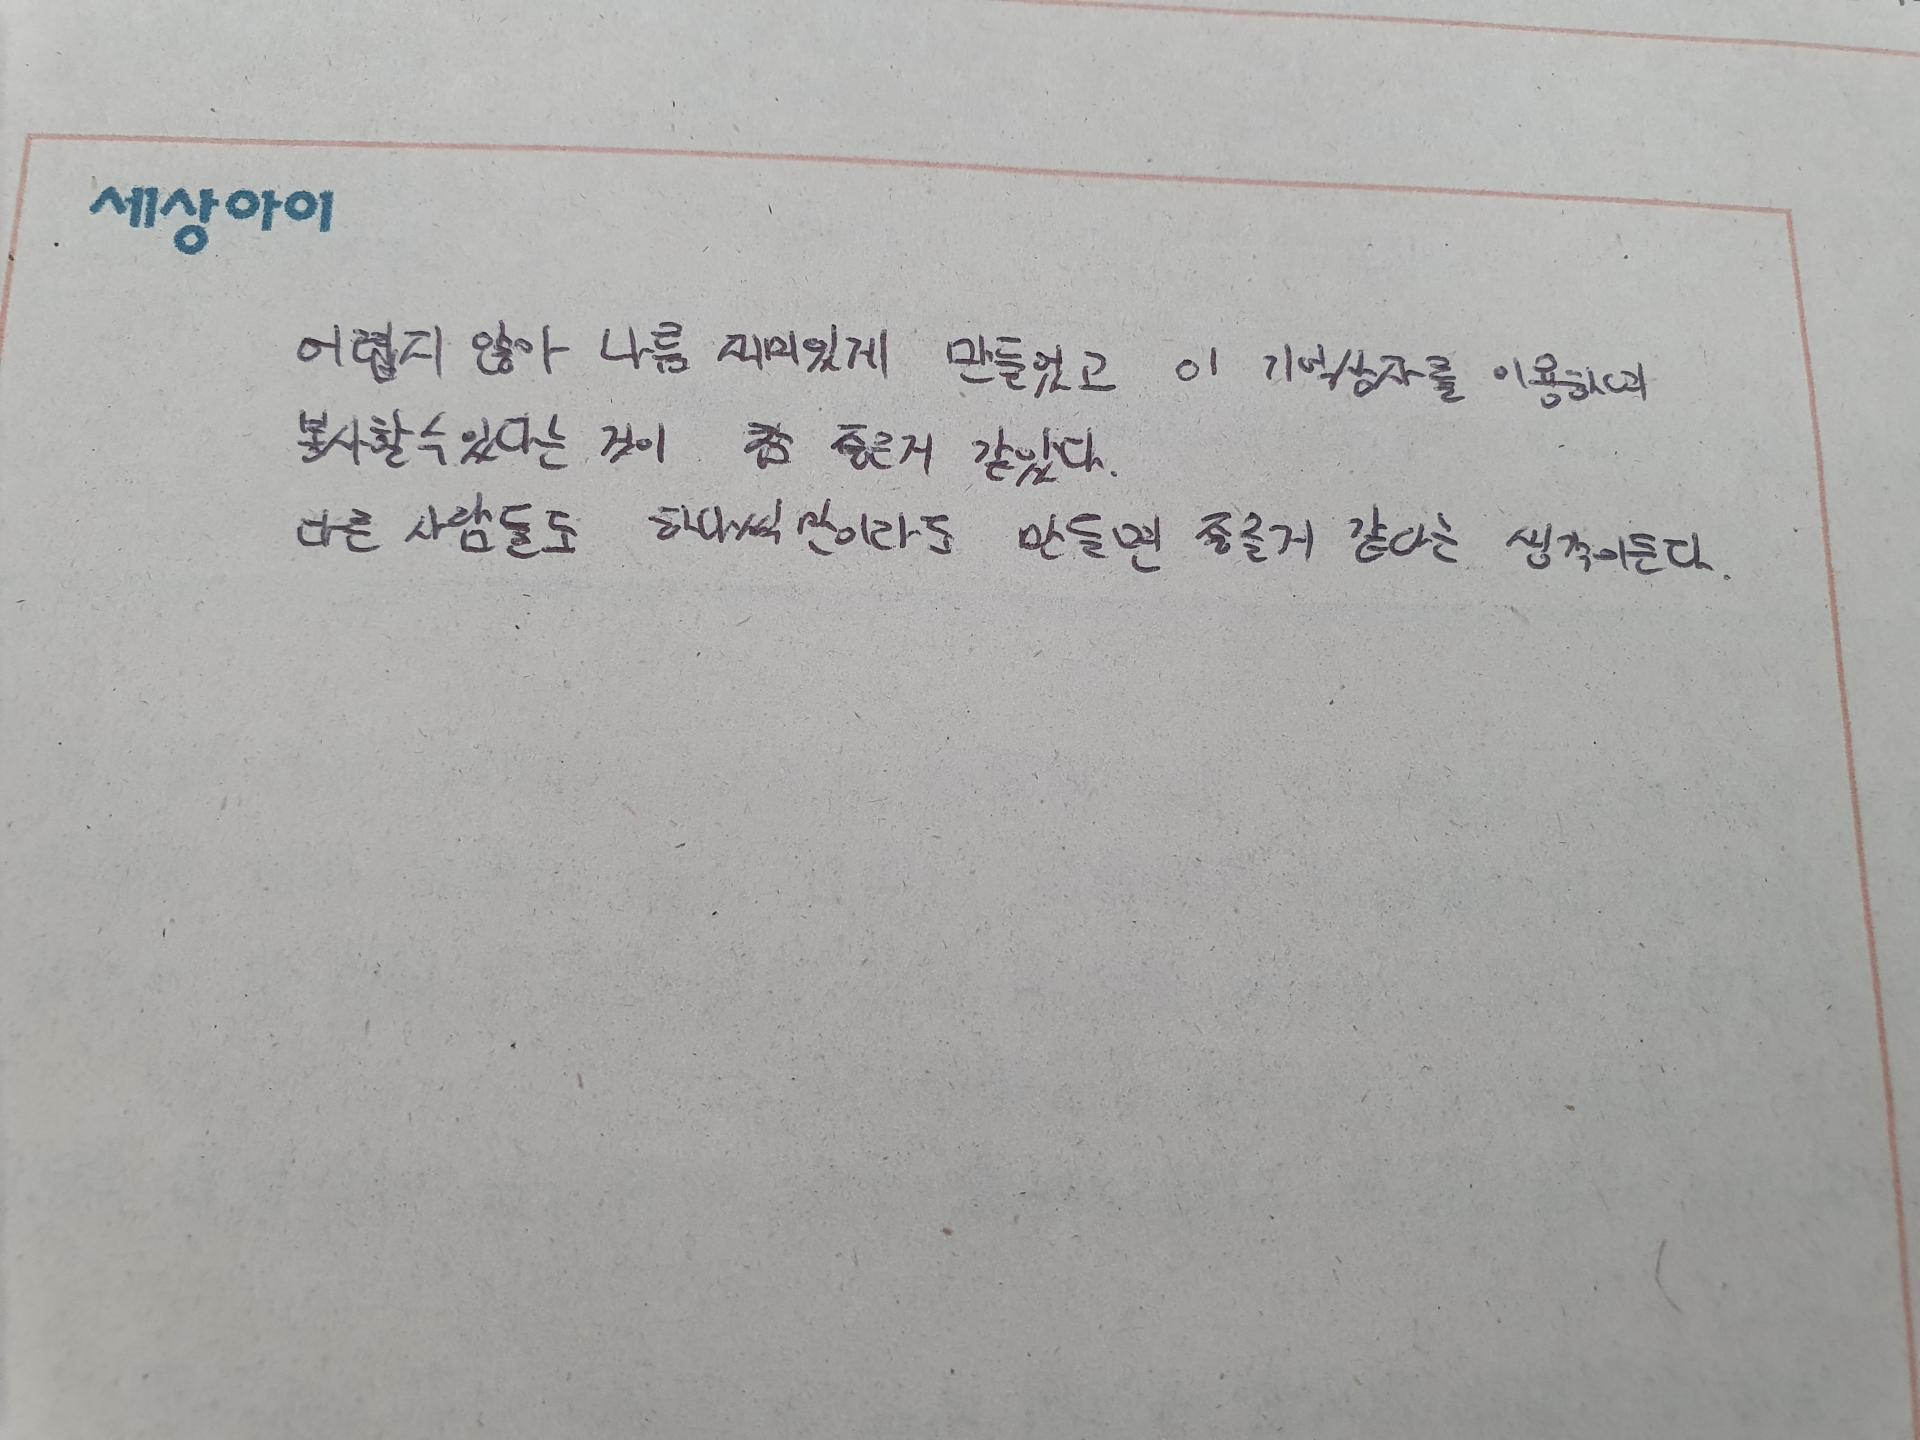 세상아이
어렵지 않아 나름 재미있게 만들었고 이 기억상자를 이용하여
봉사할수있다는 것이 좀 좋은거 같았다.
다른 사람들도 하나씩 만이라도 만들면 좋을거 같다는 생각이든다.